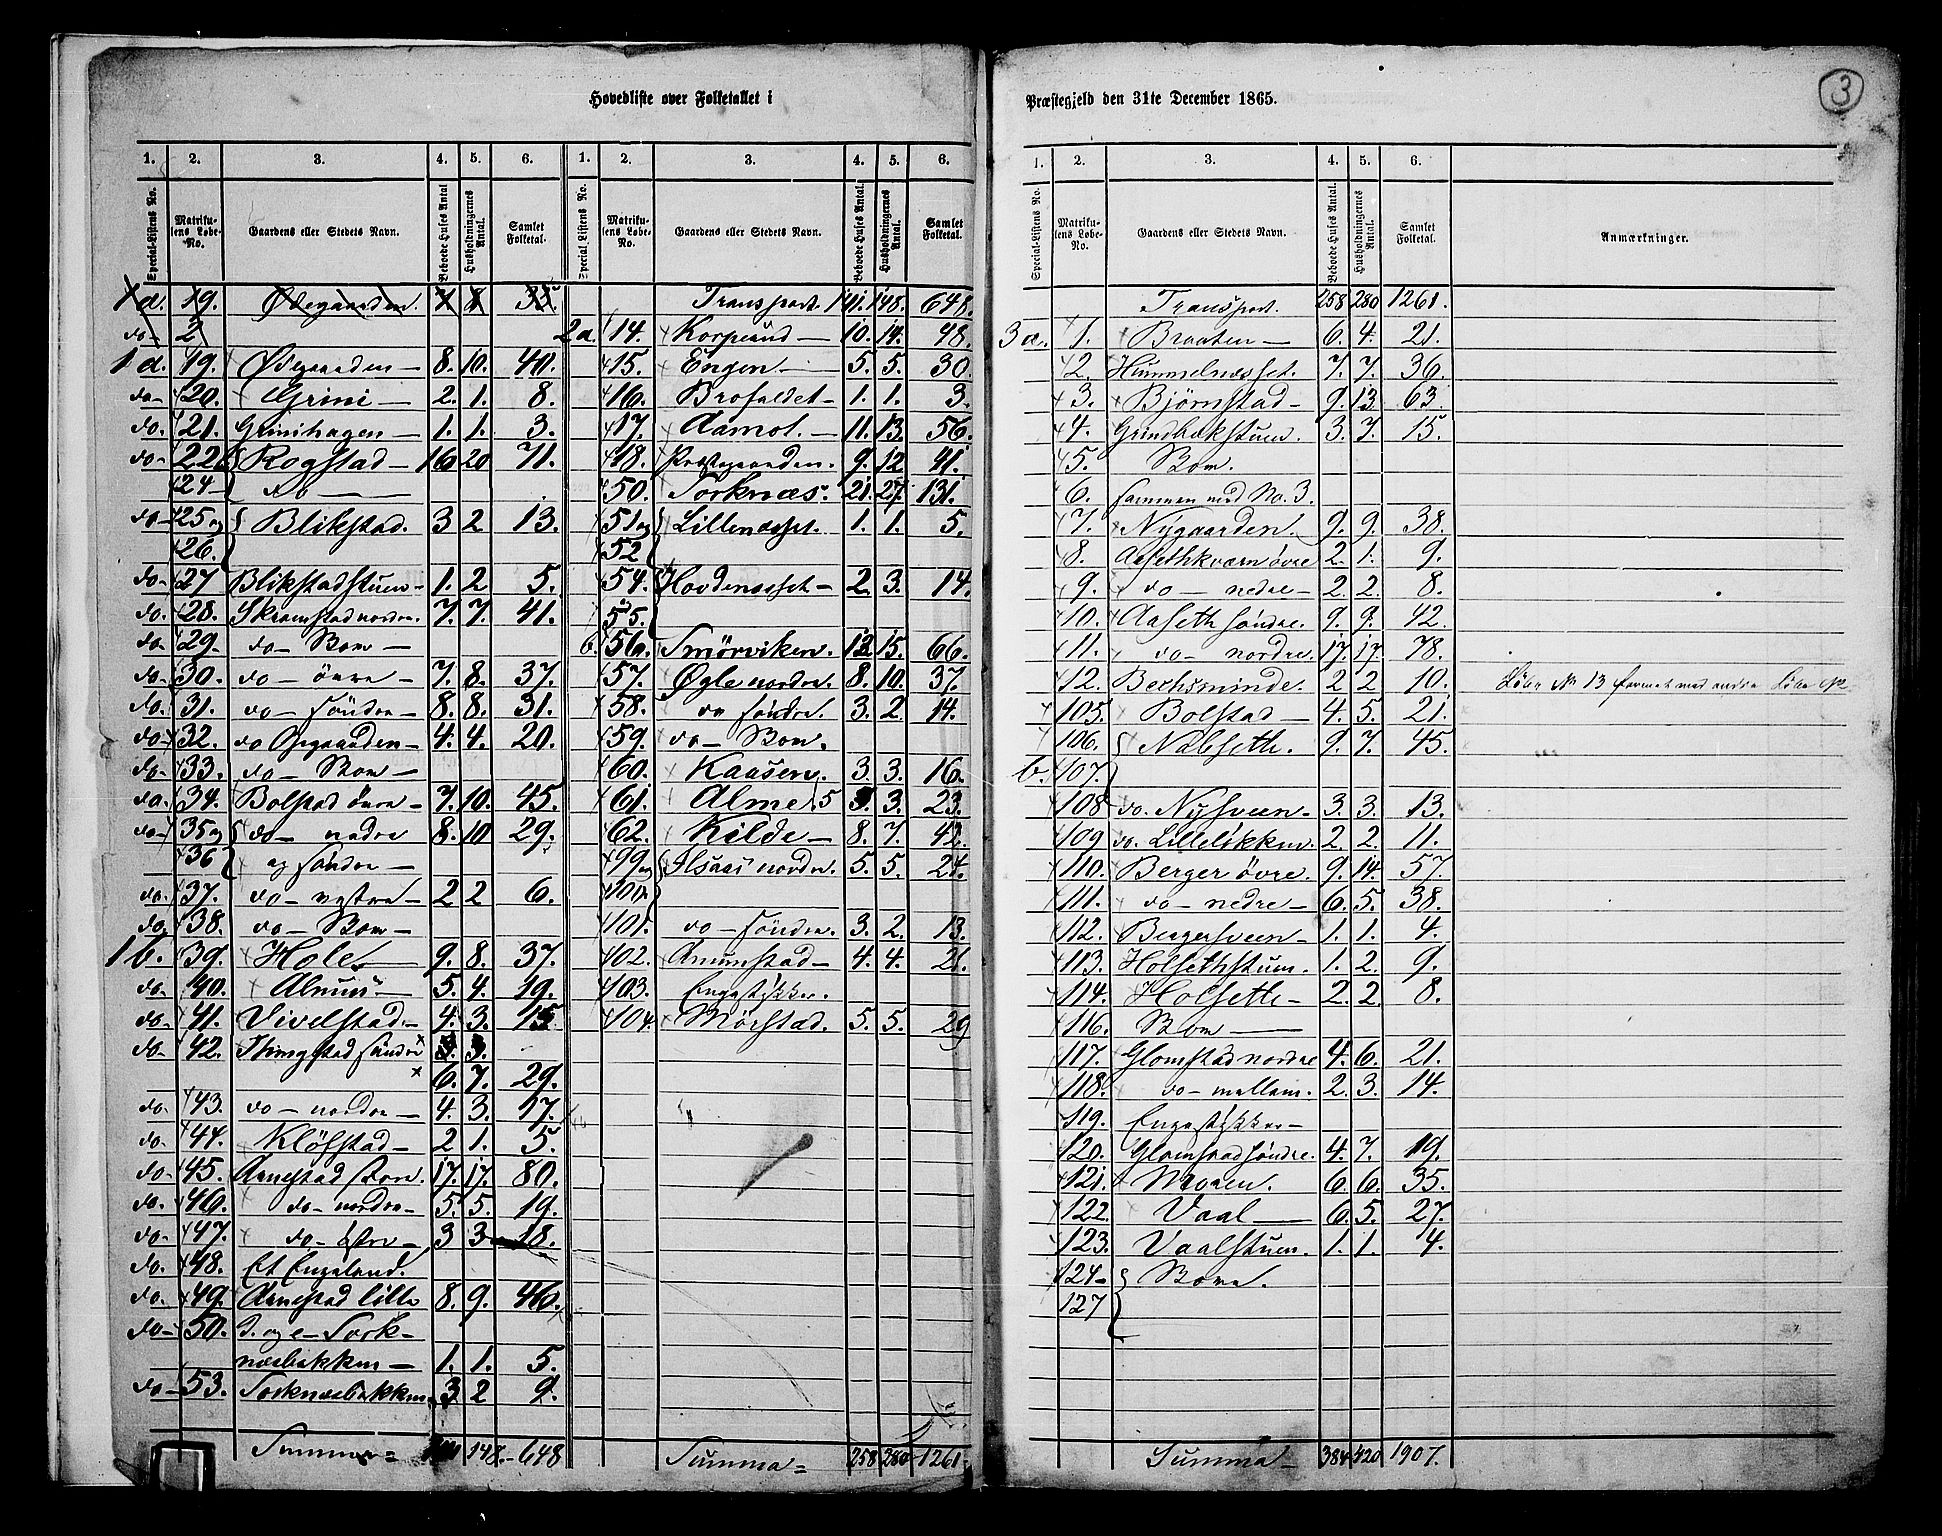 Hovedliste over Folketallet i
Præstegjeld den 31te December 1865.
3
1. 2. 3. 4. 5. 6.
Special-Listens No. Matrikulens Løbe-No. Gaardens eller Stedets Navn. Beboede Huses Antal Husholdningernes Antal. Samlet Folketal.
19. Ødegaarden.
2
1 d. 19. Ødegaarden 8. 10. 40.
do 20. Grini 2. 1. 8.
do. 21. Grinihagen 1. 1. 3.
do 22 Rogstad 16 20 71.
24 do
do 25 og Blikstad. 3 2 13.
26.
do 27 Blikstadstuen 1. 2 5.
do. 28. Skramstad nordre. 7. 7. 41.
do 29. do Bom
do. 30. do øvre 7. 8. 37.
do. 31. do søndre 8. 8. 31.
do 32. do Opgaarden 4. 4. 20.
do 33. do Bom
do 34. Bolstad øvre 7. 10. 45.
do 35 og do nedre 8. 10 29.
36 og søndre
do. 37. do vestre 2 2 6.
do 38. do Bom
1 b. 39. Hole 9. 8. 37.
do. 40. Alnuus 5. 4. 19.
do 41. Vivelstad 4. 3. 15.
do 42. Thingstad søndre
6. 7. 29.
do 43. do nordre 4. 3. 17.
do 44. Kløfstad 2 1. 5.
do 45. Arnestad store. 17. 17. 80.
do 46. do nordre 5. 5. 19.
do 47. do østre 3 3 18.
do 48. Et Engeland.
do. 49. Arnestad lille 8. 9. 46.
do 50. d. og e Tork-
næsbakken 1. 1. 5.
do 53. Torknæsbakken 3 2 9.
Summa = 148. 648
1. 2. 3. 4. 5. 6.
Special Listens No. Matrikulens Løbe-No. Gaardens eller Stedets Navn. Beboede Huses Antal. Husholdningernes Antal. Samlet Folketal.
Transport. 141. 148. 648.
2 a. 14. Korpsund 10. 14. 48.
15. Engen 5. 5. 30.
16. Brofaldet 1. 1. 3.
17. Aamot. 11. 13. 56.
18. Præstegaarden. 9. 12 41.
50. Torknæs. 21. 27. 131.
51 og Lillenæsset. 1. 1. 5.
52
54. Hovdenæsset 2. 3. 14.
55.
b. 56. Smörviken. 12 15. 66.
57. Øgle nordre. 8. 10. 37.
58. do søndre. 3. 2. 14.
59. do Bom.
60. Kaasen. 3. 3. 16.
61. Alme 3. 23.
62. Kilde 8. 7. 42.
99 og Ilsaas nordre. 5. 5. 24.
100.
101. do søndre. 3. 2. 13.
102. Amunstad 4. 4. 21.
103. Engestykker.
104. Mörstad. 5. 5. 29
Summa = 258 280 1261
1. 2. 3. 4. 5. 6.
Special-Listens No. Matrikulens Løbe-No. Gaardens eller Stedets Navn. Beboede Huses Antal. Husholdningernes Antal. Samlet Folketal. Anmærkninger.
Transport. 258 280 1261.
3 a. 1. Braaten 6. 4. 21.
2. Hummelnæsset. 7. 7. 36.
3. Bjørnstad 9. 13 63
4. Grindbækstuen. 3. 7. 15.
5. Bom.
6. sammen med No. 3.
7. Nygaarden. 9. 9. 38.
8. Aasethkværn øvre 2. 1. 9.
9. do nedre 2. 2. 8.
10. Aaseth søndre. 9. 9. 42.
11. do nordre. 17. 17. 78.
12. Bechsminde. 2 2 10. Løbe No 13 med andre Løbe
105. Bolstad 4. 5. 21.
106. Nabseth. 9. 7. 45.
b. 107.
108 do. Nysveen 3. 3. 13.
109 do. Lilleløkken 2. 2. 11.
110. Berger øvre. 9. 14. 57.
111. do nedre 6. 5. 38.
112. Bergersveen 1. 1. 4.
113. Holsethstuen. 1. 2. 9.
114. Holseth 2. 2. 8.
116. Bom
117. Glomstad nordre 4. 6. 21.
118. do mellem. 2. 3. 14.
119. Engestykker
120. Glomstad søndre. 4. 7. 19.
121. Moren. 6. 6. 35.
122. Vaal 6. 5. 27.
123. Vaalstuen. 1. 1. 4.
124 Bom.
127
Summa 384 420 1907.